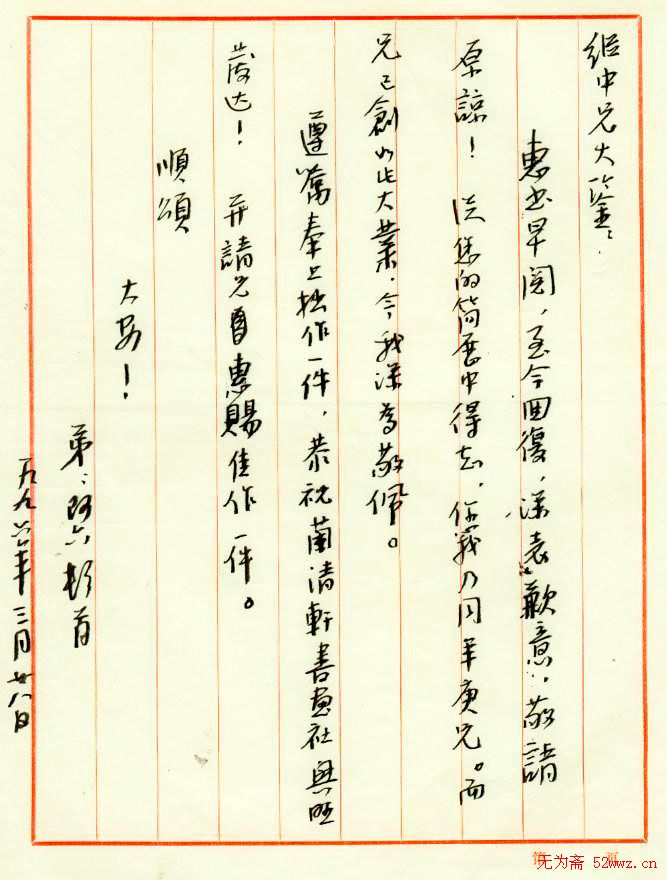 继中兄大鉴：
惠书早阅，至今回復，深表歉意，敬請
原諒！从您的简歷中得知，你我乃同年庚兄。而
兄已創如此大業，令我深为敬佩。
遵嘱奉上拙作一件，恭祝蘭清軒書画社興旺
發达！并請兄惠賜佳作一件。
順頌
大安！
弟：阿六頓首
一九九六年三月廿八日
第 页
无为斋 52wwz.cn